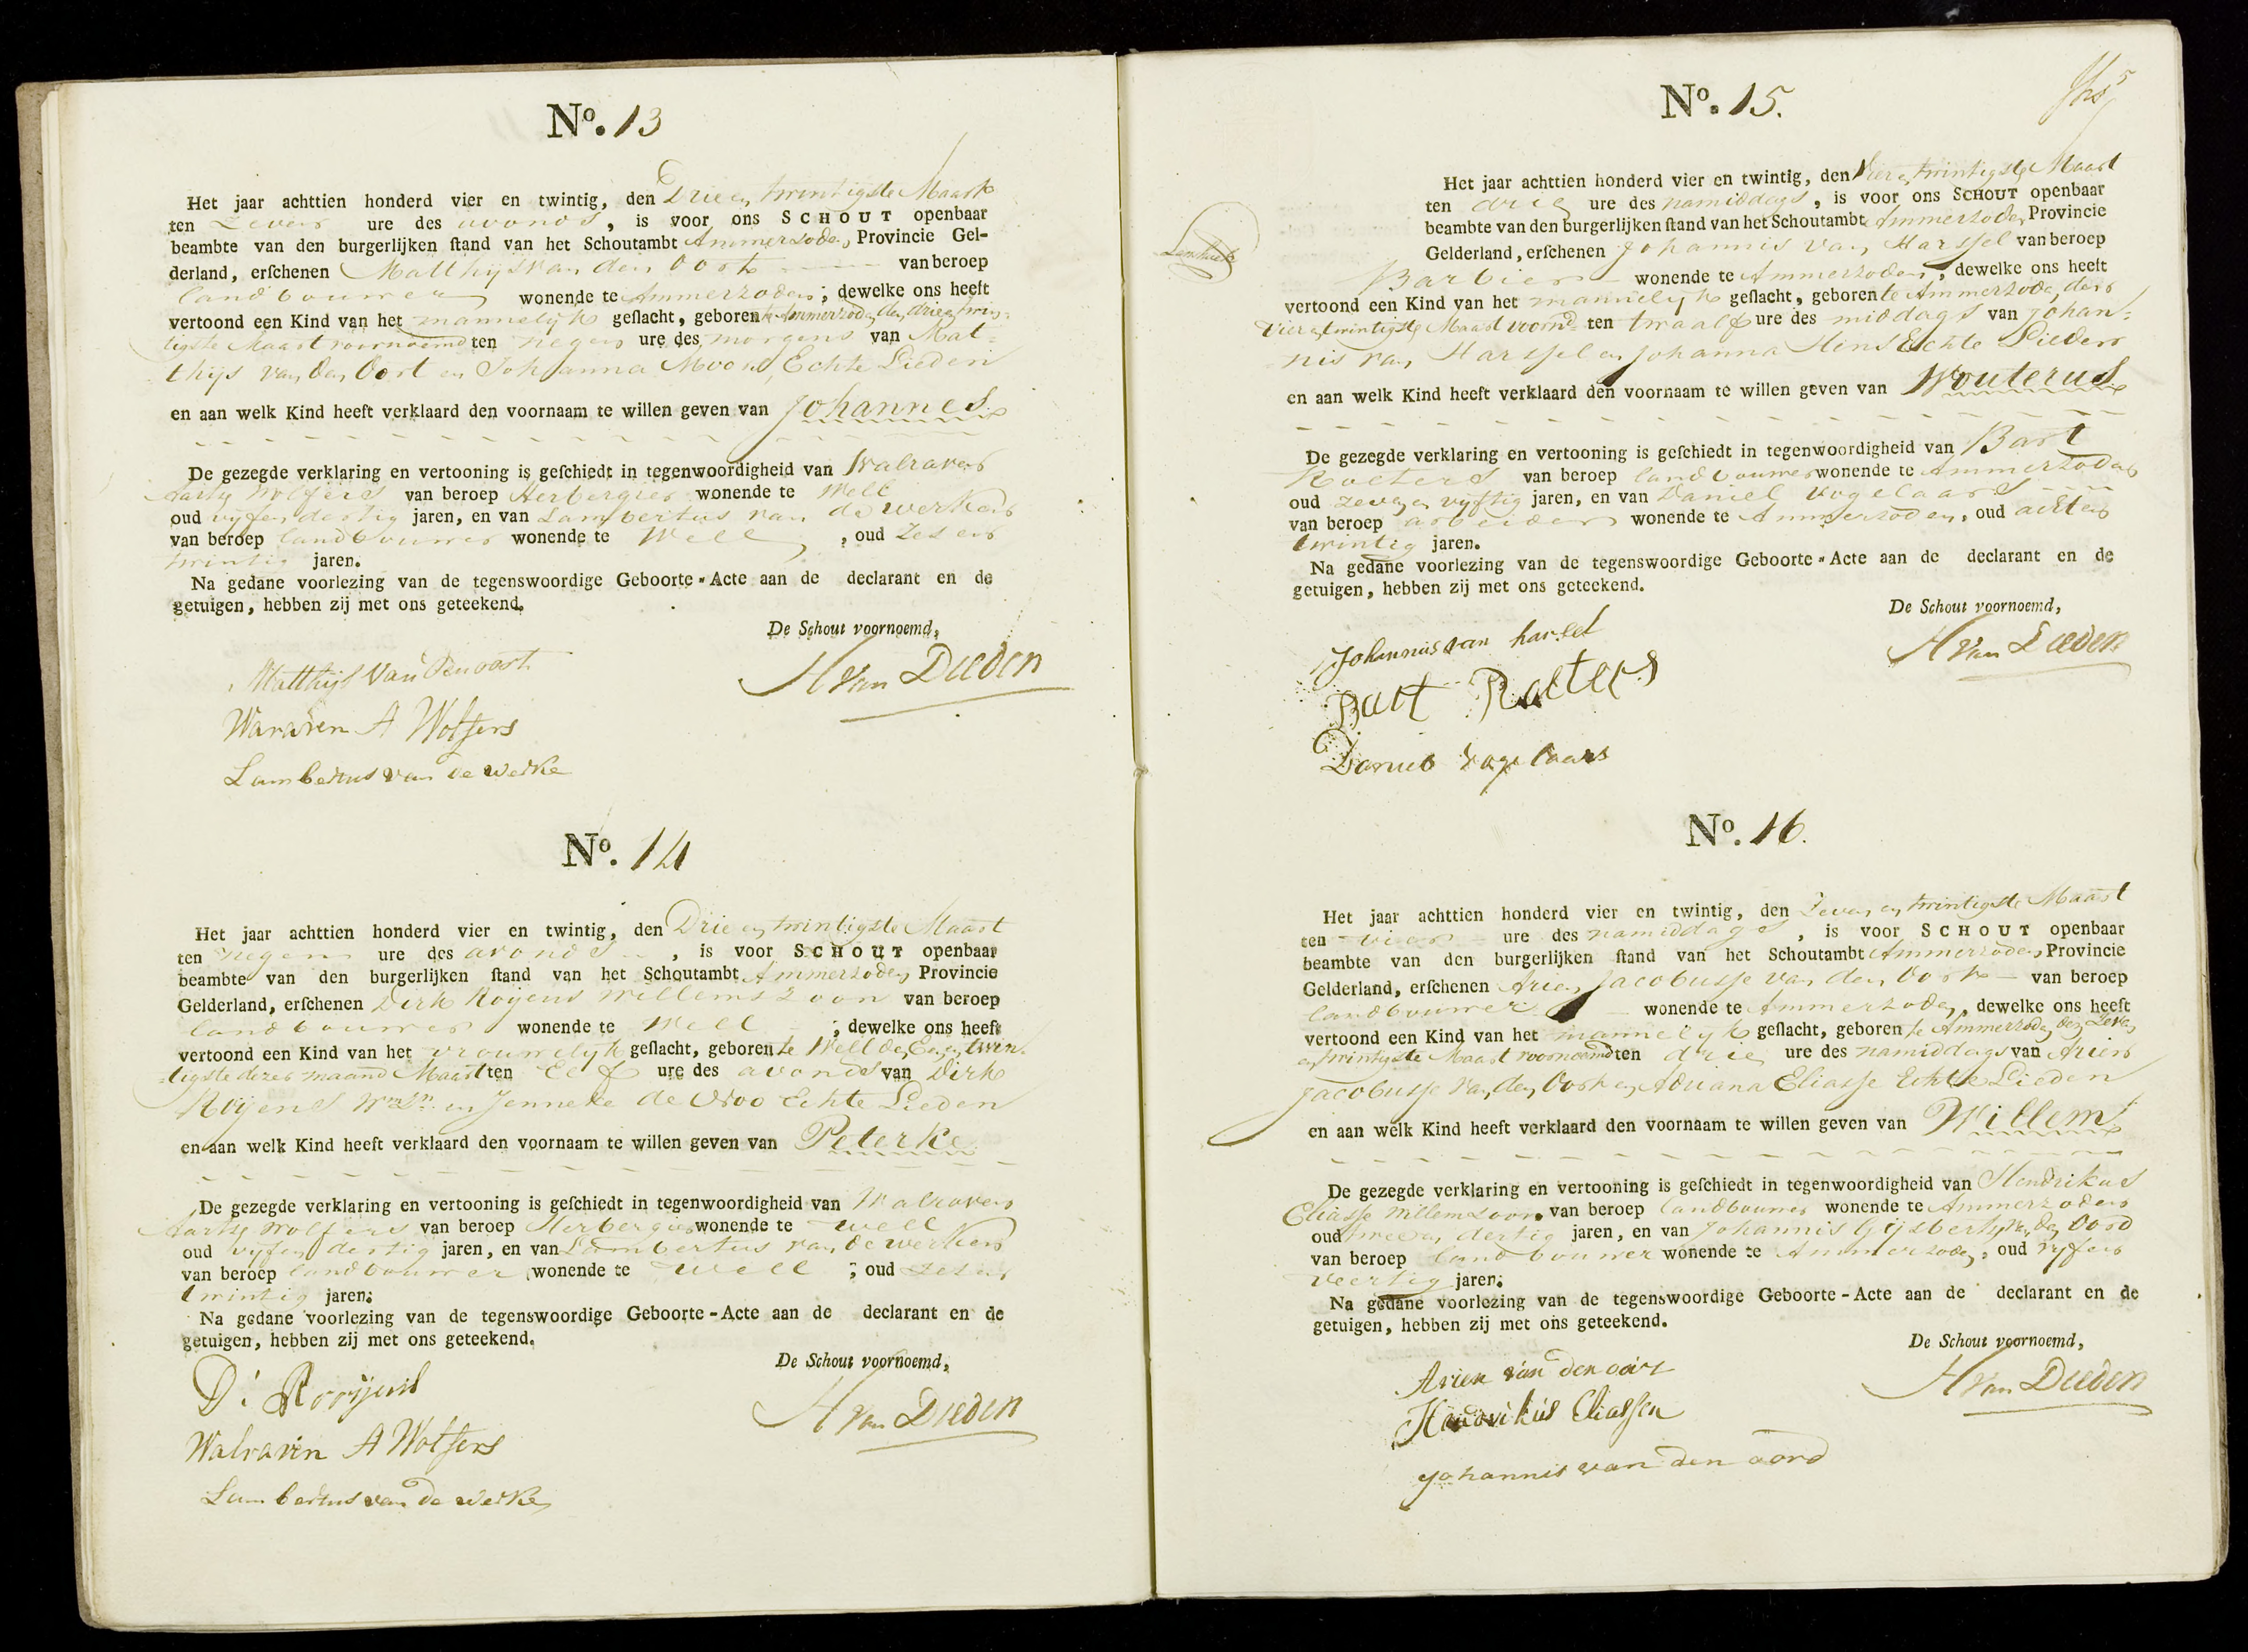 No. 13
Het jaar achttien honderd vier en twintig, den Drie en twintigste Maart
ten zeven ure des avonds, is voor ons SCHOUT openbaar
beambte van den burgerlijken stand van het Schoutambt Ammerzoden, Provincie Gel-
derland, erschenen Matthijs van den Oort van beroep
landbouwer wonende te Ammerzoden; dewelke ons heeft
vertoond een Kind van het mannelijk geslacht, geboren te Ammerzoden den drie en twin-
tigste Maart voornoemd ten negen ure des morgens van Mat-
thijs van den Oort en Johanna Moon, Echte Lieden
en aan welk Kind heeft verklaard den voornaam te willen geven van Johannes
De gezegde verklaring en vertooning is geschiedt in tegenwoordigheid van Walraven
Wolfers van beroep Herbergier wonende te Well
oud vijf en dertig jaren, en van Lambertus van de Werken
van beroep landbouwer wonende te Well, oud zes en
twintig jaren.
Na gedane voorlezing van de tegenswoordige Geboorte-Acte aan de declarant en de
getuigen, hebben zij met ons geteekend.
De Schout voornoemd,
H van Dieden
Matthijs van den oort
Wararen A Wolfers
Lambertus van de werke
No. 14
Het jaar achttien honderd vier en twintig, den Drie en twintigste Maart
ten negen ure des avonds, is voor SCHOUT openbaar
beambte van den burgerlijken stand van het Schoutambt Ammerzoden, Provincie
Gelderland, erschenen Dirk Roijens Willemszoon van beroep
landbouwer wonende te Well; dewelke ons heeft
vertoond een Kind van het vrouwelijk geslacht, geboren te Well den Een en twin-
tigste dezer maand Maart ten Elf ure des avonds van Dirk
Roijens Wmzn en Jenneke de Vroo Echte Lieden
en aan welk Kind heeft verklaard den voornaam te willen geven van Peterke
De gezegde verklaring en vertooning is geschiedt in tegenwoordigheid van Walraven
Wolfers van beroep Herbergier wonende te Well
oud vijf en dertig jaren, en van Lambertus van de Werken
van beroep landbouwer wonende te Well; oud zes en
twintig jaren;
Na gedane voorlezing van de tegenswoordige Geboorte-Acte aan de declarant en de
getuigen, hebben zij met ons geteekend.
De Schout voornoemd,
H van Dieden
D: Rooijens
Walraven A Wolfers
Lambertus van de werke
No. 15.
Het jaar achttien honderd vier en twintig, den Vier en twintigste Maart
ten drie ure des namiddags, is voor ons SCHOUT openbaar
beambte van den burgerlijken stand van het Schoutambt Ammerzoden Provincie
Gelderland, erschenen Johannis van Harssel van beroep
Barbier wonende te Ammerzoden, dewelke ons heeft
vertoond een Kind van het mannelijk geslacht, geboren te Ammerzode, den
Vier en twintigste Maart voornd ten twaalf ure des middags van Johan-
nis van Harssel en Johanna Hens Echte Lieden
en aan welk Kind heeft verklaard den voornaam te willen geven van Wouterus
De gezegde verklaring en vertooning is geschiedt in tegenwoordigheid van Bart
Roeters van beroep landbouwer wonende te Ammerzoden
oud zeven en vyftig jaren, en van Daniel Vogelaars
van beroep arbeider wonende te Ammerzoden, oud acht en
twintig jaren.
Na gedane voorlezing van de tegenswoordige Geboorte-Acte aan de declarant en de
getuigen, hebben zij met ons geteekend.
De Schout voornoemd,
H van Dieden
Johannis van harsel
Bart Roeters
Daniel Vogelaars
No. 16.
Het jaar achttien honderd vier en twintig, den Zeven en twintigste Maart
ten vier ure des namiddags, is voor SCHOUT openbaar
beambte van den burgerlijken stand van het Schoutambt Ammerzoden, Provincie
Gelderland, erschenen Arien Jacobusse van den Oort van beroep
landbouwer wonende te Ammerzoden, dewelke ons heeft
vertoond een Kind van het mannelijk geslacht, geboren te Ammerzoden den Zeven
en twintigste Maart voornoemd ten drie ure des namiddags van Arien
Jacobusse van den Oort en Adriana Eliasse Echte Lieden
en aan welk Kind heeft verklaard den voornaam te willen geven van Willem
De gezegde verklaring en vertooning is geschiedt in tegenwoordigheid van Hendrikus
Eliasse Willemszoon van beroep landbouwer wonende te Ammerzoden
oud twee en dertig jaren, en van Johannis Gijsberts van den Oord
van beroep landbouwer wonende te Ammerzoden, oud vijf en
veertig jaren;
Na gedane voorlezing van de tegenswoordige Geboorte-Acte aan de declarant en de
getuigen, hebben zij met ons geteekend.
De Schout voornoemd,
H van Dieden
Arien van den oort
Hendrikus Eliassen
Johannis van den oord